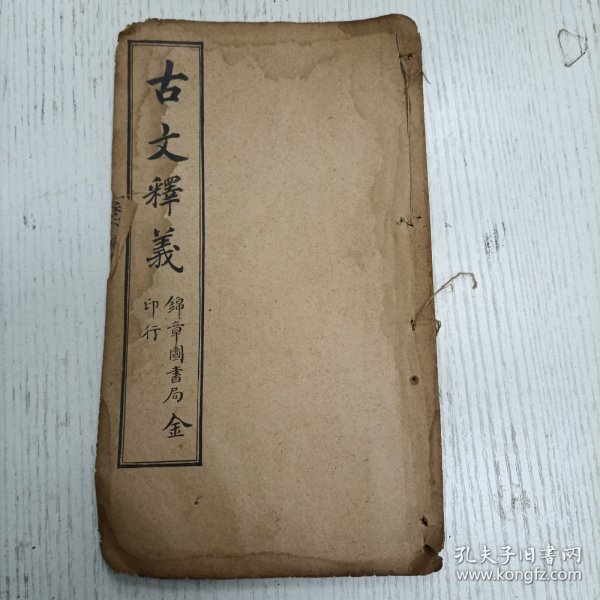 古文釋義
錦章圖書局
印行
金
孔夫子旧书网
www.kongfz.com